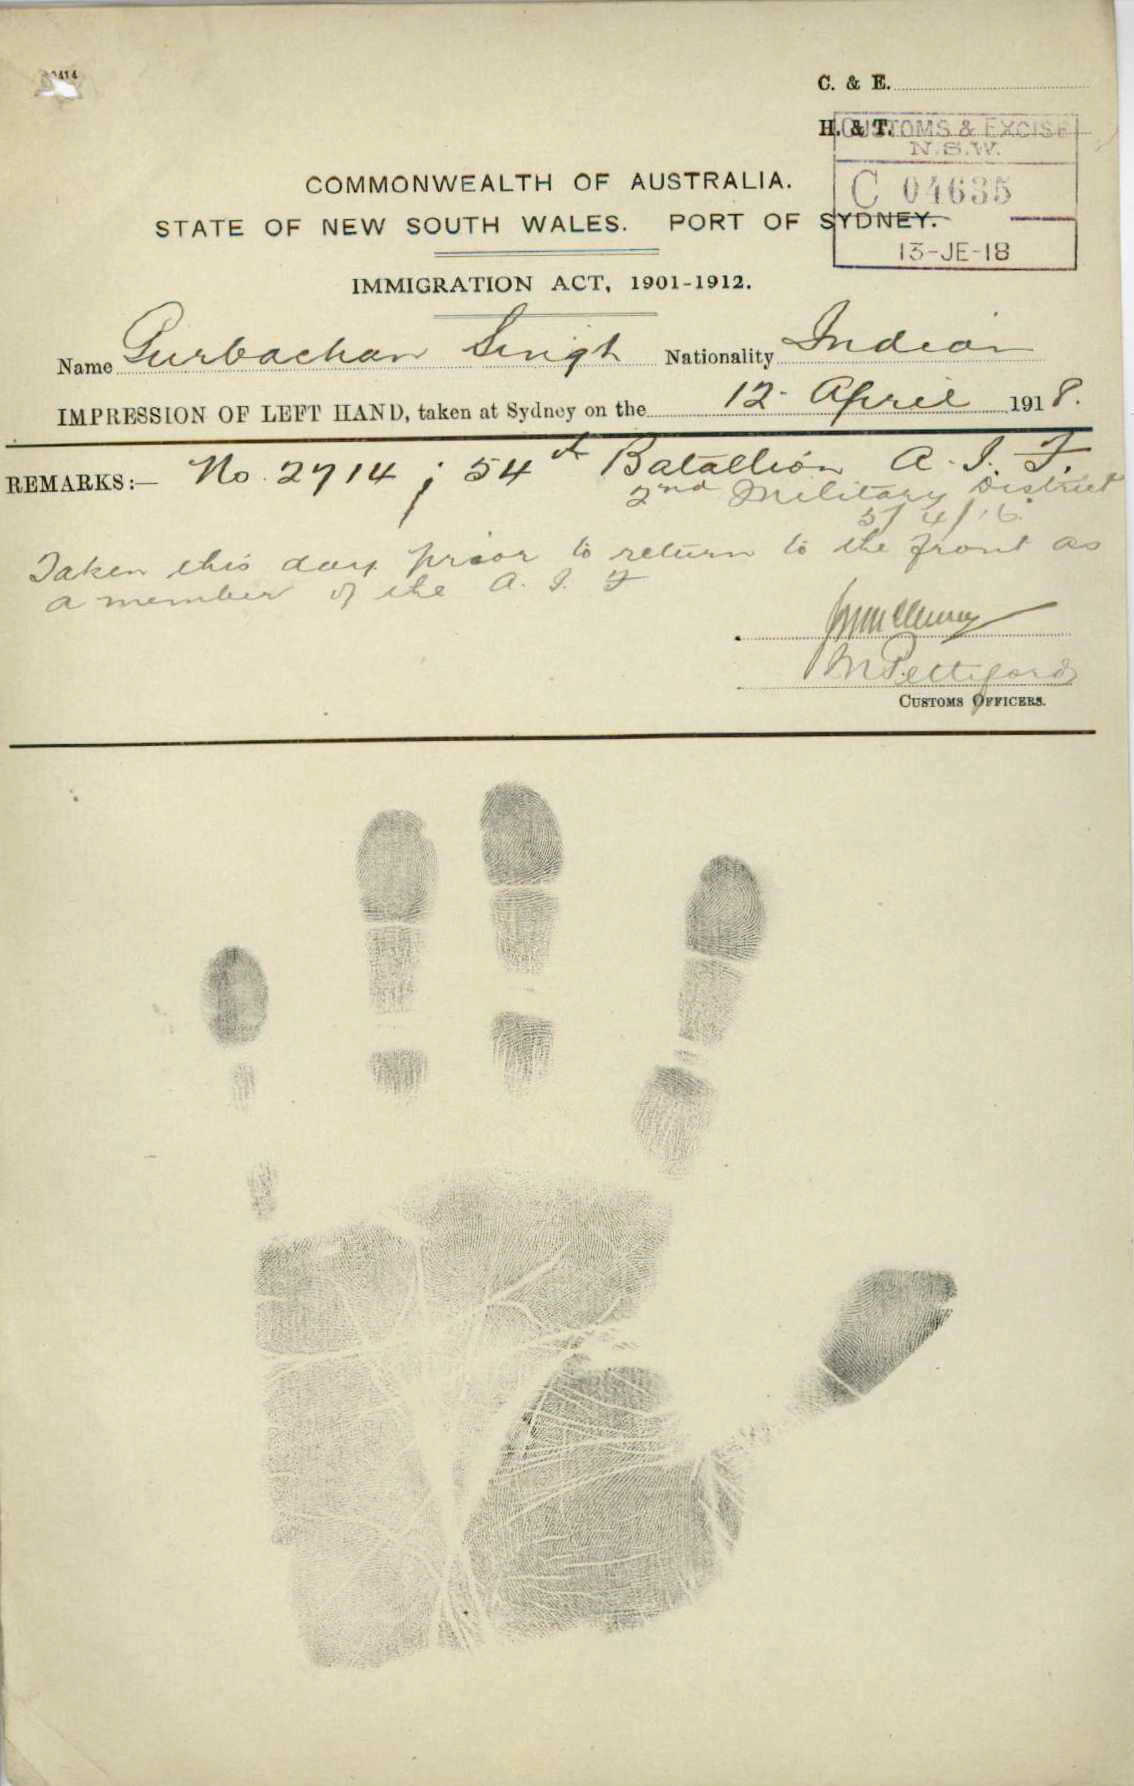 C. & E.
H. & T.
CUSTOMS & EXCISE
N.S.W.
C 04635
13-JE-18
COMMONWEALTH OF AUSTRALIA.
STATE OF NEW SOUTH WALES. PORT OF SYDNEY.
IMMIGRATION ACT, 1901-1912.
Name Gurbachan Singh Nationality Indian
IMPRESSION OF LEFT HAND, taken at Sydney on the 12. April 1918.
REMARKS:— No. 2714; 54th Batallion A. I. F.
2nd Military District
5/4/16.
Taken this day prior to return to the front as
a member of the A. I. F
M Pettiford
CUSTOMS OFFICERS.